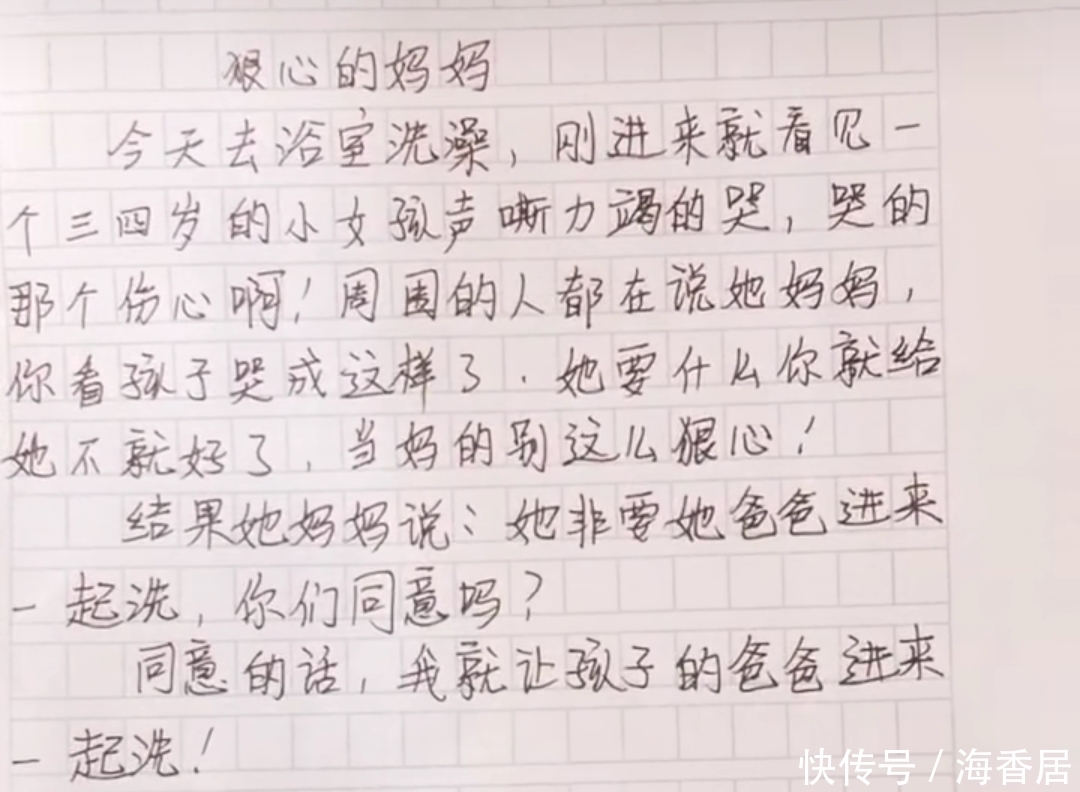 狠心的妈妈
今天去浴室洗澡，刚进来就看见一
个三四岁的小女孩声嘶力竭的哭，哭的
那个伤心啊！周围的人都在说她妈妈，
你看孩子哭成这样了．她要什么你就给
她不就好了，当妈的别这么狠心！
结果她妈妈说：她非要她爸爸进来
一起洗，你们同意吗？
同意的话，我就让孩子的爸爸进来
一起洗！
快传号／海香居